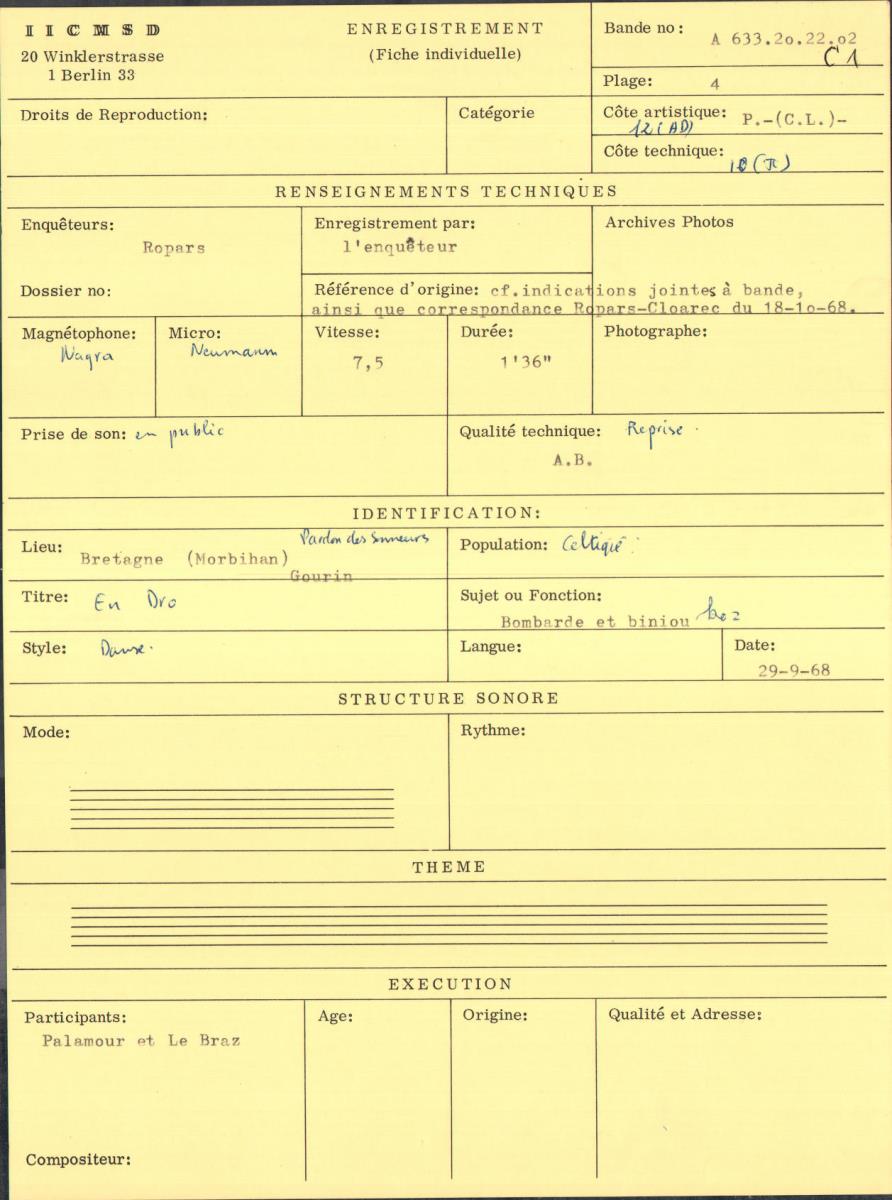 IICMSD
20 Winklerstrasse
1 Berlin 33
ENREGISTREMENT
(Fiche individuelle)
Bande no: A 633.2o.22.o2
C1
Plage: 4
Droits de Reproduction:
Catégorie
Côte artistique: P.-(C.L.)-
12(AD)
Côte technique:
RENSEIGNEMENTS TECHNIQUES
Enquêteurs:
Ropars
Enregistrement par:
l'enquêteur
Archives Photos
Dossier no:
Référence d'origine: cf.indications jointes à bande,
ainsi que correspondance Ropars-Cloarec du 18-1o-68.
Magnétophone:
Nagra
Micro:
Neumann
Vitesse:
7,5
Durée:
1'36"
Photographe:
Prise de son: en public
Qualité technique: Reprise
A.B.
IDENTIFICATION:
Lieu: Pardon des Sonneurs
Bretagne (Morbihan)
Gourin
Population: Celtique
Titre: En Dro
Sujet ou Fonction:
Bombarde et biniou koz
Style: Danse.
Langue:
Date:
29-9-68
STRUCTURE SONORE
Mode:
Rythme:
THEME
EXECUTION
Participants:
Palamour et Le Braz
Age:
Origine:
Qualité et Adresse:
Compositeur: